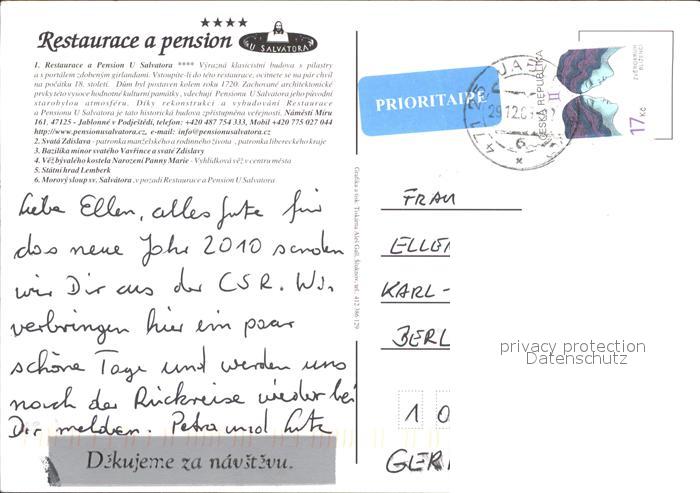 ★★★★
Restaurace a pension U SALVATORA
1. Restaurace a Pension U Salvatora **** Výrazná klasicistní budova s pilastry
a s portálem zdobeným girlandami. Vstoupíte-li do této restaurace, ocitnete se na pár chvil
na počátku 18. století. Dům byl postaven kolem roku 1720. Zachované architektonické
prvky této vysoce hodnotné kulturní památky, vdechují Pensionu U Salvatora jeho původní
starobylou atmosféru. Díky rekonstrukci a vybudování Restaurace
a Pensionu U Salvatora je tato historická budova zpřístupněna veřejnosti. Náměstí Míru
161, 47125 - Jablonné v Podještědí, telefon: +420 487 754 333, Mobil +420 775 027 044
http://www.pensionusalvatora.cz, e-mail: info@pensionusalvatora.cz
2. Svatá Zdislava - patronka manželského a rodinného života , patronka libereckého kraje
3. Bazilika minor svatého Vavřince a svaté Zdislavy
4. Věž bývalého kostela Narození Panny Marie - Vyhlídková věž v centru města
5. Státní hrad Lemberk
6. Morový sloup sv. Salvátora , v pozadí Restaurace a Pension U Salvatora
Liebe Ellen, alles Gute für
das neue Jahr 2010 senden
wir Dir aus der CSR. Wir
verbringen hier ein paar
schöne Tage und werden uns
nach der Rückreise wieder bei
Dir melden. Petra und Lutz
Děkujeme za návštěvu.
Grafika a tisk Tiskárna Aleš Gall, Šluknov, tel.: 412 386 129
PRIORITAIRE
ČESKÁ REPUBLIKA
ZVĚROKRUH
BLÍŽENCI
II
17 Kč
471 25
29.12.
6
FRAU
ELLEN
KARL-
BERL
1 0
GER
privacy protection
Datenschutz